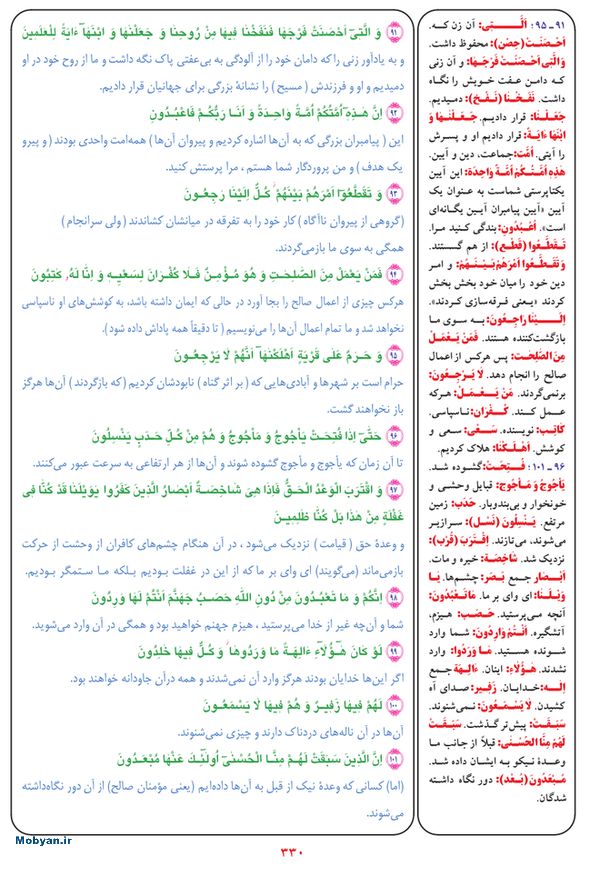 ۹۱ وَ الَّتیٓ اَحْصَنَتْ فَرْجَهَا فَنَفَخْنَا فیهَا مِنْ رُوحِنَا وَ جَعَلْنَهَا وَ ابْنَهَآ ءَایَةً لِلْعَلَمینَ
و به یادآور زنی را که دامان خود را از آلودگی به بی‌عفتی پاک نگه داشت و ما از روح خود در او
دمیدیم و او و فرزندش ( مسیح ) را نشانهٔ بزرگی برای جهانیان قرار دادیم.
۹۲ اِنَّ هَذِهٓ اُمَّتُکُمْ اُمَّةً وَاحِدَةً وَ اَنَا رَبُّکُمْ فَاعْبُدُونِ
این ( پیامبران بزرگی که به آن‌ها اشاره کردیم و پیروان آن‌ها ) همه‌امت واحدی بودند ( و پیرو
یک هدف ) و من پروردگار شما هستم ، مرا پرستش کنید.
۹۳ وَ تَقَطَّعُوٓا اَمْرَهُمْ بَیْنَهُمْ کُلٌّ اِلَیْنَا رَجِعُونَ
(گروهی از پیروان ناآگاه ) کار خود را به تفرقه در میانشان کشاندند ( ولی سرانجام )
همگی به سوی ما بازمی‌گردند.
۹۴ فَمَنْ یَعْمَلْ مِنَ الصَّلِحَتِ وَ هُوَ مُؤْمِنٌ فَلَا کُفْرَانَ لِسَعْیِهِ وَ اِنَّا لَهُ کَتِبُونَ
هرکس چیزی از اعمال صالح را بجا آورد در حالی که ایمان داشته باشد، به کوشش‌های او ناسپاسی
نخواهد شد و ما تمام اعمال آن‌ها را می‌نویسیم ( تا دقیقاً همه پاداش داده شود ).
۹۵ وَ حَرَمٌ عَلَی قَرْیَةٍ اَهْلَکْنَهَآ اَنَّهُمْ لَا یَرْجِعُونَ
حرام است بر شهرها و آبادی‌هایی که ( بر اثر گناه ) نابودشان کردیم ( که بازگردند ) آن‌ها هرگز
باز نخواهند گشت.
۹۶ حَتَّیٓ اِذَا فُتِحَتْ یَأْجُوجُ وَ مَأْجُوجُ وَ هُمْ مِنْ کُلِّ حَدَبٍ یَنْسِلُونَ
تا آن زمان که یأجوج و مأجوج گشوده شوند و آن‌ها از هر ارتفاعی به سرعت عبور می‌کنند.
۹۷ وَ اقْتَرَبَ الْوَعْدُ الْحَقُّ فَاِذَا هِیَ شَاخِصَةٌ اَبْصَارُ الَّذینَ کَفَرُوا یَوَیْلَنَا قَدْ کُنَّا فی
غَفْلَةٍ مِنْ هَذَا بَلْ کُنَّا ظَلِمینَ
و وعدهٔ حق ( قیامت ) نزدیک می‌شود ، در آن هنگام چشم‌های کافران از وحشت از حرکت
بازمی‌ماند (می‌گویند) ای وای بر ما که از این در غفلت بودیم بلکه ما ستمگر بودیم.
۹۸ اِنَّکُمْ وَ مَا تَعْبُدُونَ مِنْ دُونِ اللَّهِ حَصَبُ جَهَنَّمَ اَنْتُمْ لَهَا وَرِدُونَ
شما و آن‌چه غیر از خدا می‌پرستید ، هیزم جهنم خواهید بود و همگی در آن وارد می‌شوید.
۹۹ لَوْ کَانَ هَؤُلَآءِ ءَالِهَةً مَا وَرَدُوهَا وَ کُلٌّ فیهَا خَلِدُونَ
اگر این‌ها خدایان بودند هرگز وارد آن نمی‌شدند و همه درآن جاودانه خواهند بود.
۱۰۰ لَهُمْ فیهَا زَفیرٌ وَ هُمْ فیهَا لَا یَسْمَعُونَ
آن‌ها در آن ناله‌های دردناک دارند و چیزی نمی‌شنوند.
۱۰۱ اِنَّ الَّذینَ سَبَقَتْ لَهُمْ مِنَّا الْحُسْنَیٓ اُولَئِکَ عَنْهَا مُبْعَدُونَ
(اما) کسانی که وعدهٔ نیک از قبل به آن‌ها داده‌ایم (یعنی مؤمنان صالح) از آن دور نگاه‌داشته
می‌شوند.
۹۱ـ۹۵: اَلَّــتی: آن زن که.
اَحْصَنَتْ (حِصْن): محفوظ داشت.
وَالَّتی اَحْصَنَتْ فَرْجَهَا: و آن زنی
که دامن عفت خویش را نگاه
داشت. نَفَخْنَا (نَفْخ): دمیدیم.
جَعَلْنَا: قرار دادیم. جَعَلْنَهَا وَ
ابْنَهَا ءَایَةً: قرار دادیم او و پسرش
را آیتی. اُمَّت: جماعت، دین و آیین.
هَذِهٓ اُمَّتُکُمْ اُمَّةً وَاحِدَةً: این آیین
یکتاپرستی شماست به عنوان یک
آیین «آیین پیامبران آیین یگانه‌ای
است». اُعْبُدُونِ: بندگی کنید مرا.
تَقَطَّعُوا (قَطْع): از هم گسستند.
وَ تَقَطَّعُوا اَمْرَهُمْ بَیْنَهُمْ: و امر
دین خود را میان خود بخش بخش
کردند «یعنی فرقه‌سازی کردند».
اِلَیْنَا رَاجِعُونَ: به سوی ما
بازگشت‌کننده هستند. فَمَنْ یَعْمَلْ
مِنَ الصَّلِحَت: پس هرکس از اعمال
صالح را انجام دهد. لَا یَرْجِعُونَ:
برنمی‌گردند. مَنْ یَعْمَلْ: هرکه
عمل کند. کُفْرَان: ناسپاسی.
کَاتِب: نویسنده. سَعْی: سعی و
کوشش. اَهْلَکْنَا: هلاک کردیم.
۹۶ـ۱۰۱: فُتِحَتْ: گشوده شد.
یَأْجُوجُ وَ مَأْجُوج: قبایل وحشی و
خونخوار و بی‌بندوبار. حَدَب: زمین
مرتفع. یَنْسِلُونَ (نَسْل): سرازیر
می‌شوند، می‌تازند. اِقْتَرَبَ (قُرْب):
نزدیک شد. شَاخِصَة: خیره و مات.
اَبْصَار جمع بَصَر: چشم‌ها. یَا
وَیْلَنَا: ای وای بر ما. مَا تَعْبُدُونَ:
آنچه می‌پرستید. حَصَب: هیزم،
آتشگیره. اَنْتُمْ وَارِدُونَ: شما وارد
شونده هستید. مَا وَرَدُوا: وارد
نشدند. هَؤُلَاءِ: اینان. ءَالِهَة جمع
اِلَه: خدایان. زَفیر: صدای آه
کشیدن. لَا یَسْمَعُونَ: نمی‌شنوند.
سَبَقَتْ: پیش‌تر گذشت. سَبَقَتْ
لَهُمْ مِنَّا الْحُسْنَی: قبلاً از جانب ما
وعدهٔ نیکو به ایشان داده شد.
مُبْعَدُونَ (بُعْد): دور نگاه داشته
شدگان.
Mobyan.ir
۳۳۰